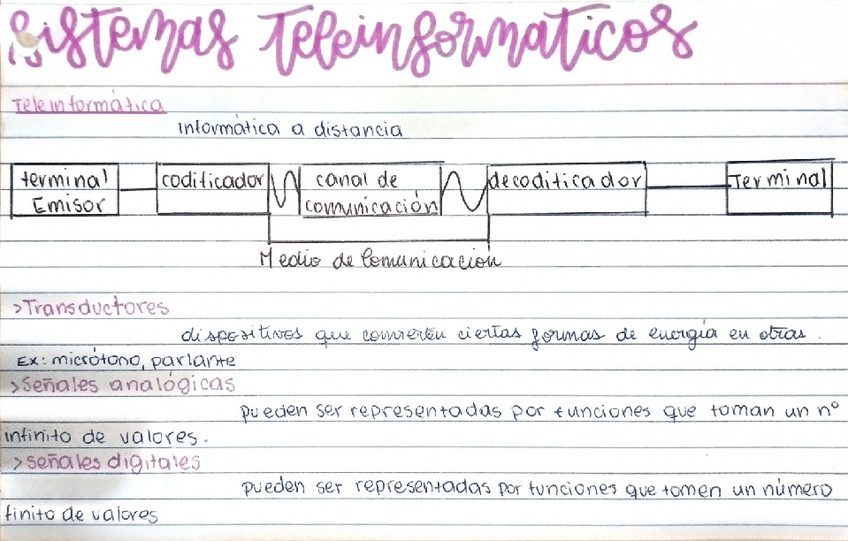 Sistemas Teleinformaticos
Teleinformática
informática a distancia
terminal Emisor
codificador
canal de comunicación
decodificador
Terminal
Medio de Comunicación
>Transductores
dispositivos que convierten ciertas formas de energía en otras.
Ex: micrófono, parlante
>Señales analógicas
pueden ser representadas por funciones que toman un nº
infinito de valores.
>señales digitales
pueden ser representadas por funciones que tomen un número
finito de valores